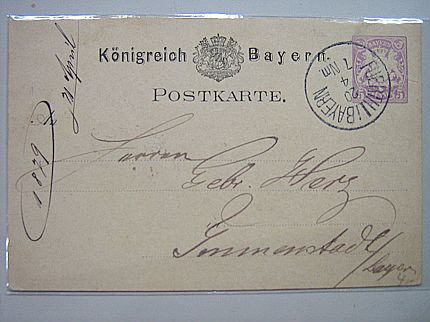 Königreich Bayern.
POSTKARTE.
BAYERN
20
4
7. Nm.
BAYERN
5
1879
Herren
Gebr. Herz
Immenstadt
/Bayern